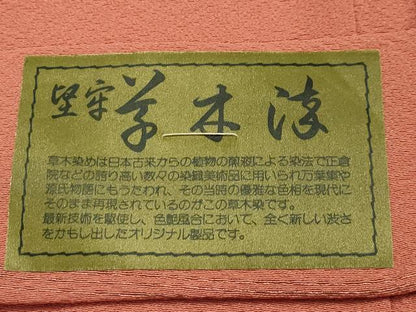 堅牢 草木染
草木染めは日本古来からの植物の煎液による染法で正倉
院などの誇り高い数々の染織美術品に用いられ万葉集や
源氏物語にもうたわれ、その当時の優雅な色相を現代に
そのまま再現されているのがこの草木染です。
最新技術を駆使し、色艶風合において、全く新しい渋さ
をかもし出したオリジナル製品です。